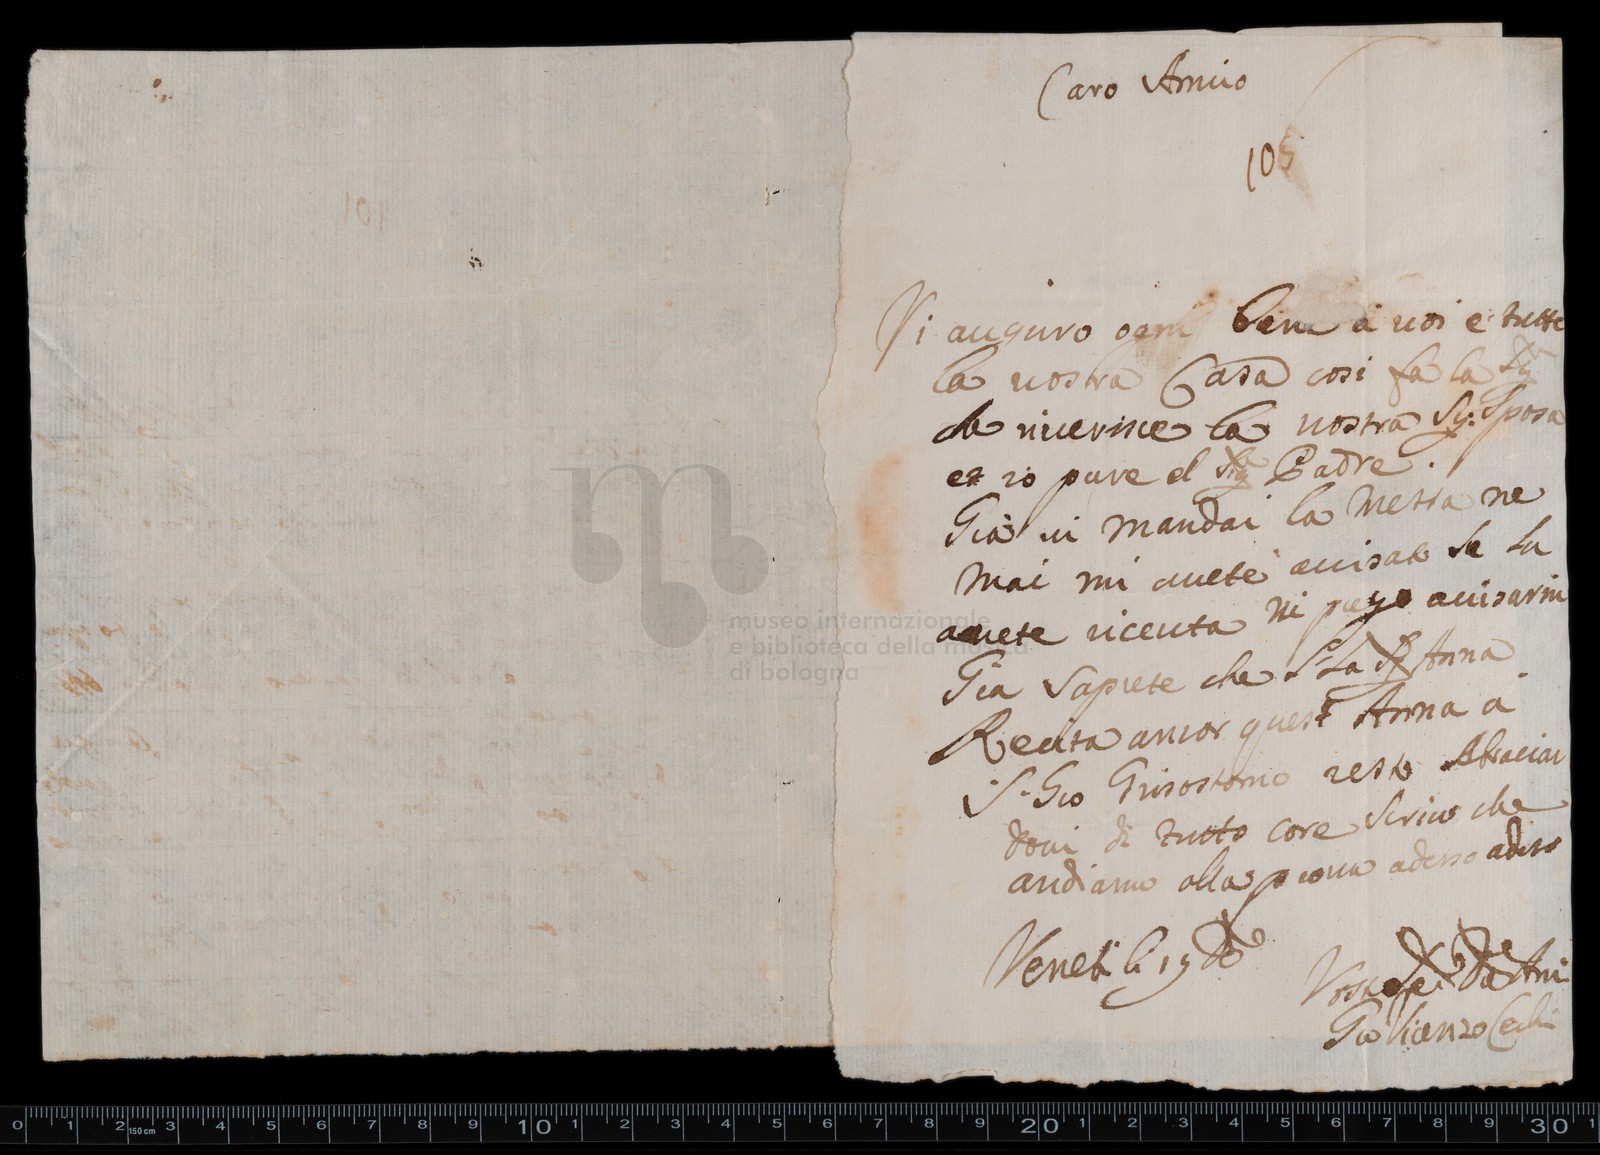 Caro Amico
105
101
Vi auguro ogni bene à voi e tutte
la vostra Casa così fa la Sig
che riverisce la vostra Sig: Sposa
et io pure el Sig Padre.
Già vi mandai la Messa ne
mai mi avete avisato se la
avete riceuta vi prego avisarmi
Gia sapete che S La Anna
Recita ancor quest Anna à
S. Gio Grisostomo resto Abraciar
dovi di tutto core scrivo che
andiamo alla prova adesso adesso
Venet li 19
Vostro Ami
Gio Vicenzo Cechi
museo internazionale
e biblioteca della musica
di bologna
0 1 2 150 cm 3 4 5 6 7 8 9 10 1 2 3 4 5 6 7 8 9 20 1 2 3 4 5 6 7 8 9 30 1